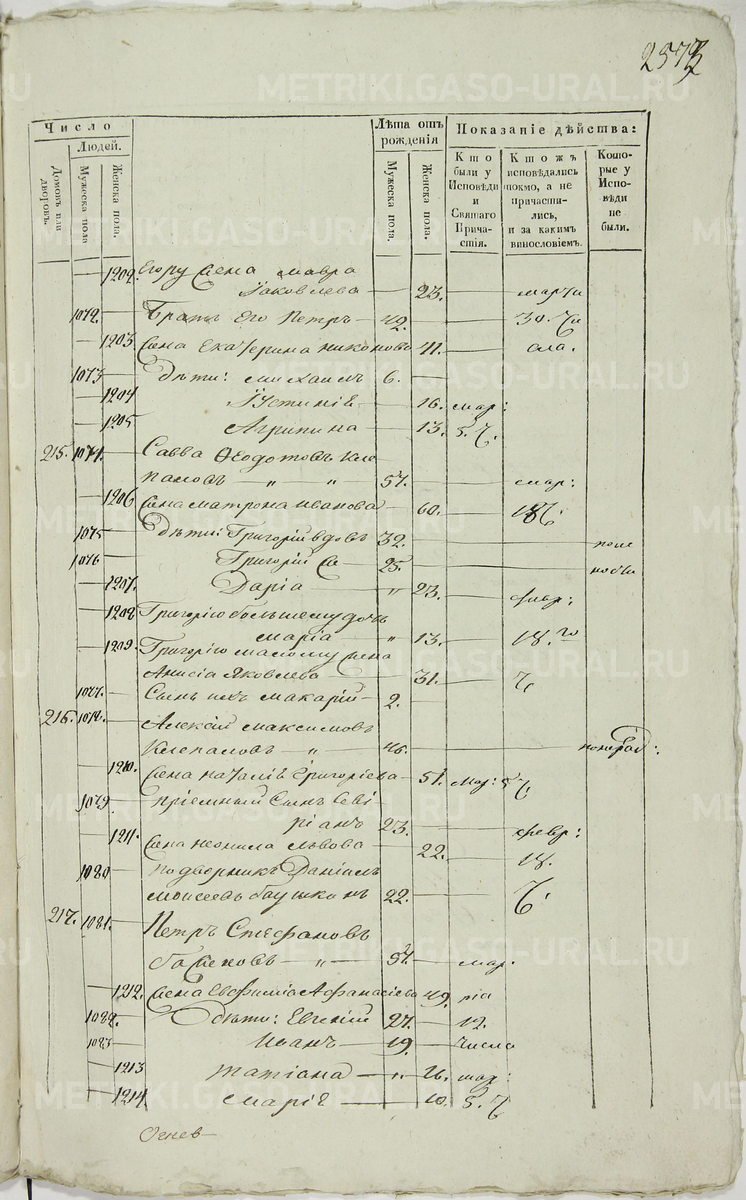 2573
Число
Людей.
Домовъ или дворовъ.
Мужеска пола
Женска пола.
Лѣта отъ рожденія
Мужеска пола.
Женска пола.
Показаніе дѣйства:
Кто были у Исповѣди и Святаго Причастія.
Ктожъ исповѣдались токмо, а не причастились, и за какимъ винословіемъ.
Которые у Исповѣди не были.
1202. Егору жена Мавра
Іаковлева — 23. — марта
1072. Братъ Его Петръ — 42. — 30. Ч
1203 жена Екатерина никонова 41. —
1073 — дѣти: михаилъ 6. —
1204 Іустинія — 16. мар:
1205 Агрипина — 13. 5. Ч.
215. 1074. Савва Ѳедотовъ Кле
пановъ „ „ 57. — мар:
1206 жена матрона иванова — 60. — 18 Ч.
1075 дѣти: Григорій вдовъ 32. —
1076 Григорій — 25. —
1207. Дарія — „ 23. — февр:
1208 Григорію большему дочь
марія — „ 13. — 18. го
1209. Григорію малому жена
Анисія Яковлева — 31. — Ч
1077. Сынъ ихъ макарій — 2. —
216. 1078. Алексій максимовъ
Клепаловъ — „ — 46. —
1210. жена наталія григоріева — 51. мар: 5 Ч
1079 пріемный Сынъ Севі-
ріанъ 23. — февр:
1211. жена неонила львова — 22. — 18.
1080 подворникъ Даніилъ
моисеевъ баушкинъ 22. — Ч.
217. 1081. Петръ Стефановъ
— „ — 57. — мар.
1212. жена Евфимія Афанасіева 49.
1082. дѣти: Евгеній 27. — 12.
1083 Иванъ — 19. — числа
1213 татіана — „ 26. мар:
1214 марія — 10. 5. Ч
METRIKI.GASO-URAL.RU